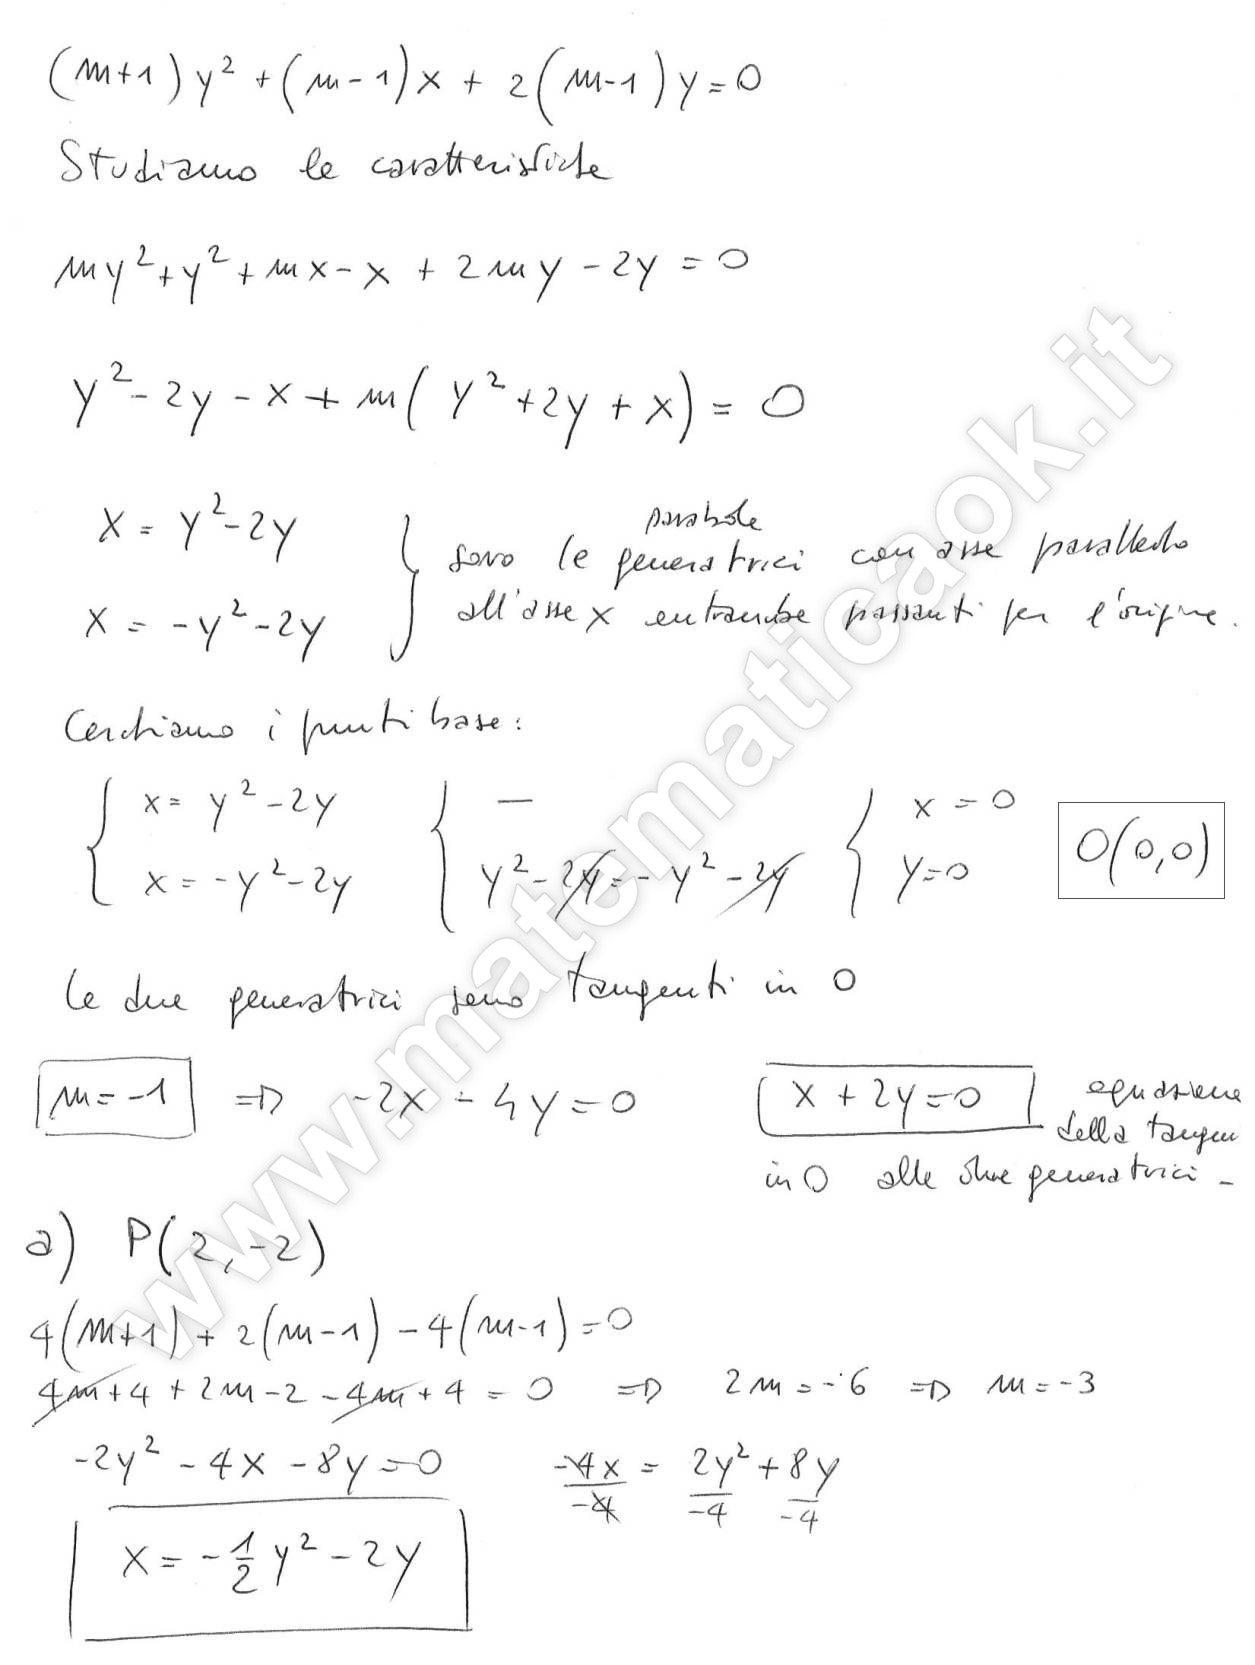 (m+1)y² + (m-1)x + 2(m-1)y = 0
Studiamo le caratteristiche
my² + y² + mx - x + 2my - 2y = 0
y² - 2y - x + m(y² + 2y + x) = 0
x = y² - 2y
x = -y² - 2y
} sono le parabole generatrici con asse parallelo
all'asse x entrambe passanti per l'origine.
Cerchiamo i punti base:
{ x = y² - 2y { — { x = 0
x = -y² - 2y y² - 2y = -y² - 2y y = 0 O(0,0)
le due generatrici sono tangenti in O
m = -1 => -2x - 4y = 0 x + 2y = 0 equazione
della tangen
in O alle due generatrici -
a) P(2,-2)
4(m+1) + 2(m-1) - 4(m-1) = 0
4m + 4 + 2m - 2 - 4m + 4 = 0 => 2m = -6 => m = -3
-2y² - 4x - 8y = 0 -4x/-4 = 2y²/-4 + 8y/-4
x = -1/2 y² - 2y
www.matematicaok.it